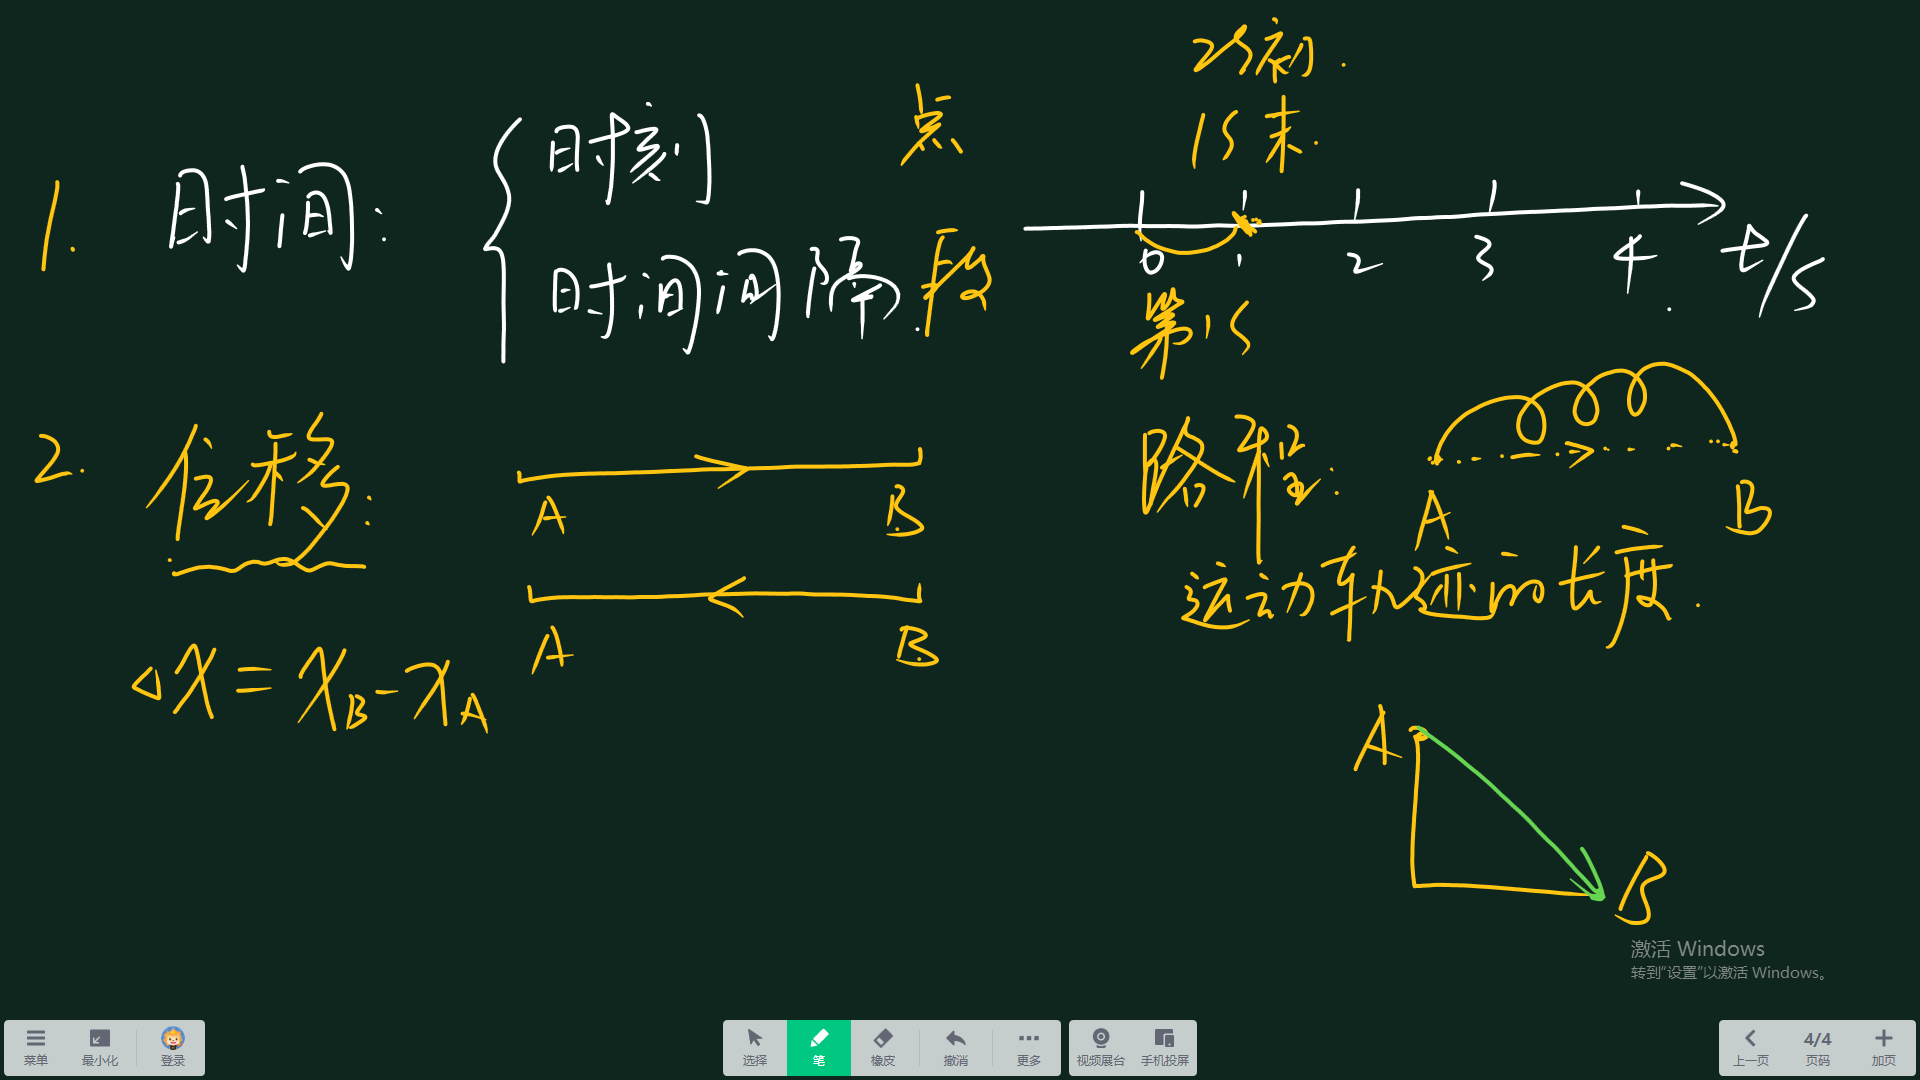 1. 时间:
时刻 点
时间间隔. 段
2S初.
1S末.
0 1 2 3 4 t/s
第1S
2. 位移:
A B
A B
△x=xB-xA
路程:
A B
运动轨迹的长度.
A
B
激活 Windows
转到“设置”以激活 Windows。
菜单 最小化 登录 选择 笔 橡皮 撤消 更多 视频展台 手机投屏 上一页 4/4 页码 加页